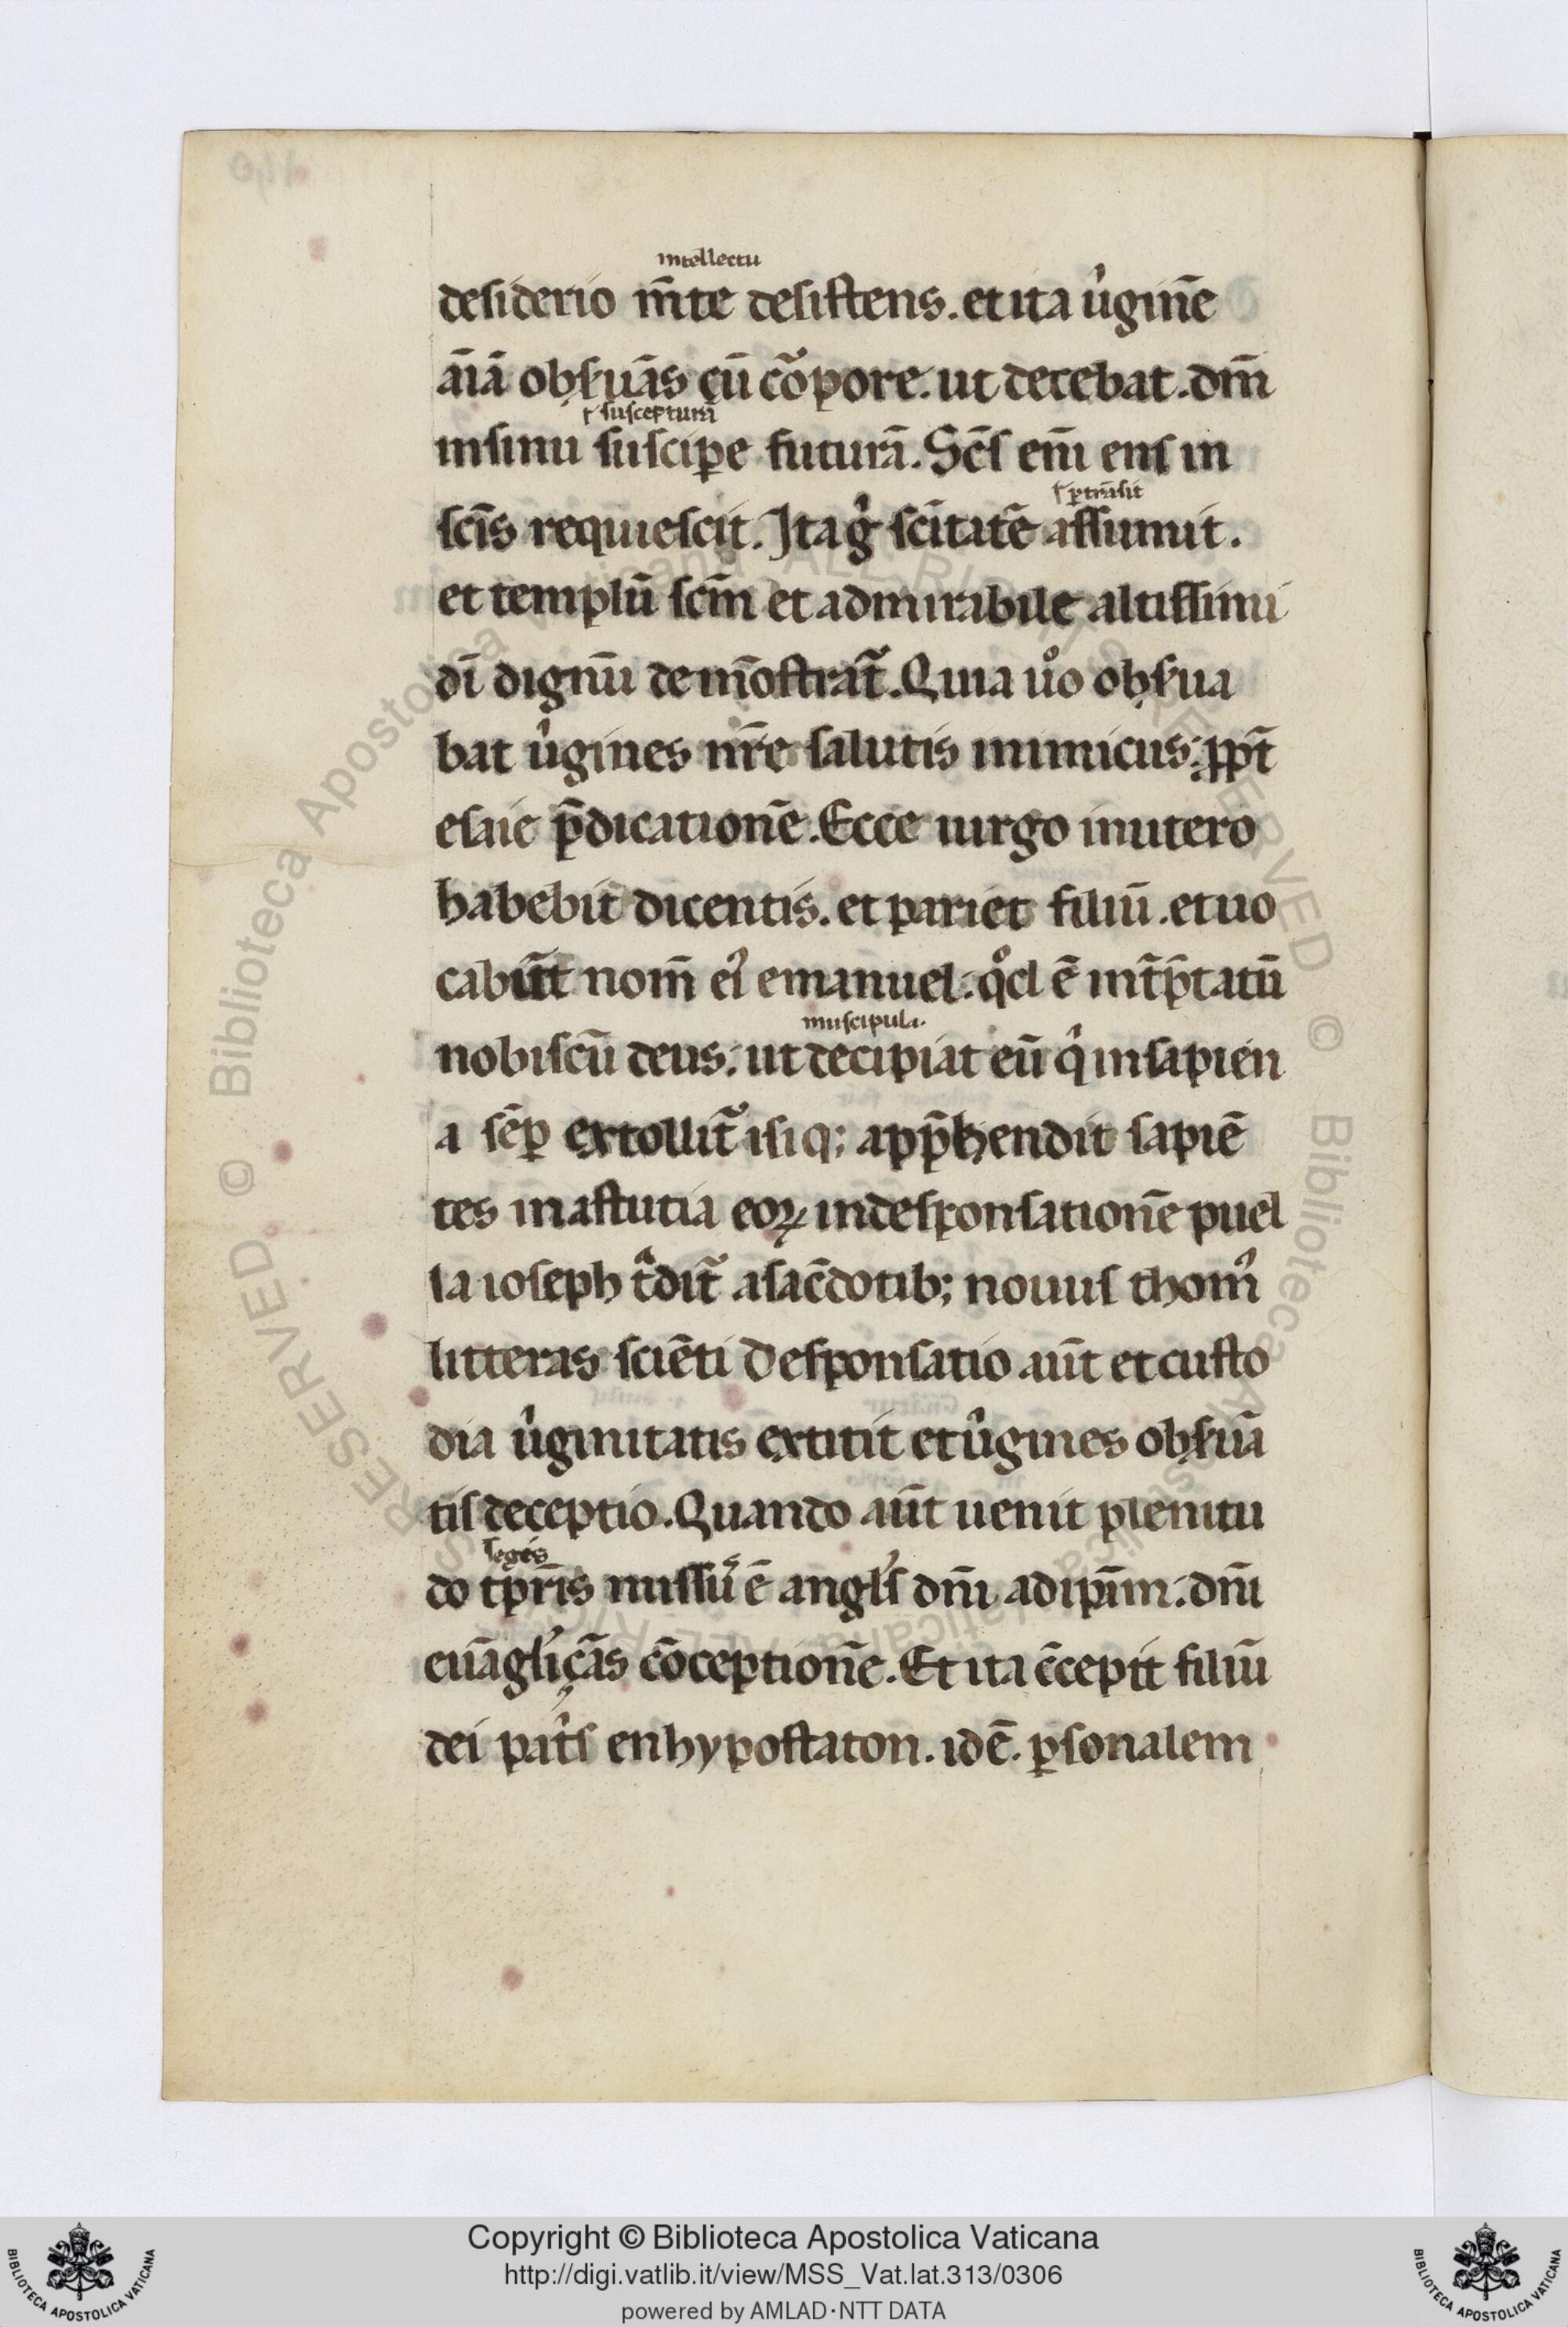 intellectu
desiderio m̄te desiſtens. et ita u̾gine̅
aīā obſeruās cū cō̾pore. ut decebat. dn̄m
ſuſcepturā
inſinu ſuſcipe futurā. Sc̄ſ eni̅ enſ in
ꝑtrāſit
ſcīs requieſcit. Itaqͥ ſcītatē aſſumit.
et templū ſcm̄ et admirabile altiſſimi
dī dignū demōſtrat᷑. Quia uͦo obſerua
bat u̾gines nr̄e ſalutis inimicus. ꝓpt̄
eſaie p̄dicationē. Ecce uirgo inutero
habebit dicentis. et pariet filiū. et uo
cabūt nom̄ eiꝰ emanuel. qͦd ē int̄p̄tatū
muſcipula.
nobiſcū deus. ut decipiat eū qͥ inſapien
a ſēꝑ extollit᷑ iſiq; app̄hendit ſapiē
tes inaſtutia eoꝝ indeſponſationē puel
la ioſeph tᷓdit᷑ aſac̄dotib; nouuſ thomꝰ
litteras ſciēti Deſponſatio aūt et cuſto
dia u̾ginitatis extitit et u̾gines obſeruā
tiſ deceptio. Quando aūt uenit plenitu
legis
do tp̄ris miſſuſ ē angl̓ſ dn̄i adip̄am. dn̄i
euāgl̓içās cōceptionē. Et ita c̄cepit filiū
dei patͥſ enhypoſtaton. idē. ꝑſonalem
Copyright © Biblioteca Apostolica Vaticana
http://digi.vatlib.it/view/MSS_Vat.lat.313/0306
powered by AMLAD·NTT DATA
BIBLIOTECA APOSTOLICA VATICANA
BIBLIOTECA APOSTOLICA VATICANA